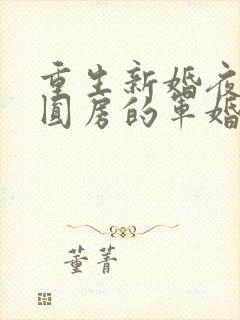 重生新婚夜
圆房的军婚
董菁